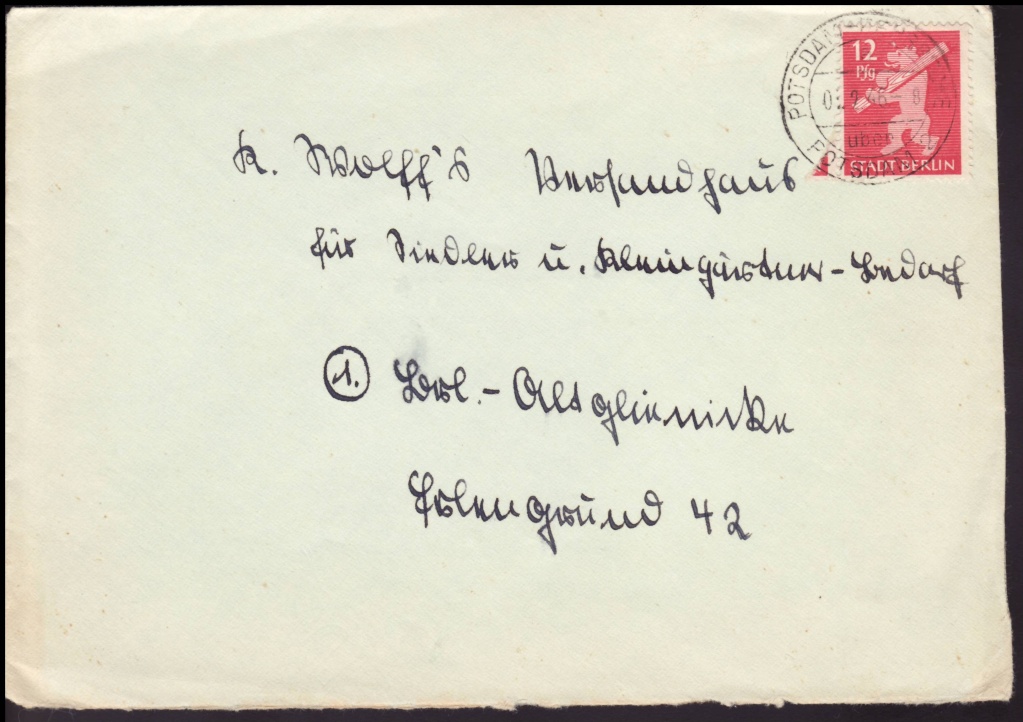 12
Pfg
STADT BERLIN
POTSDAM
02.2.46 - 8
über
POTSDAM
K. Wolff's Versandhaus
für Siedler u. Kleingärtner-Bedarf
1. Brl.- Altglienicke
Erlengrund 42